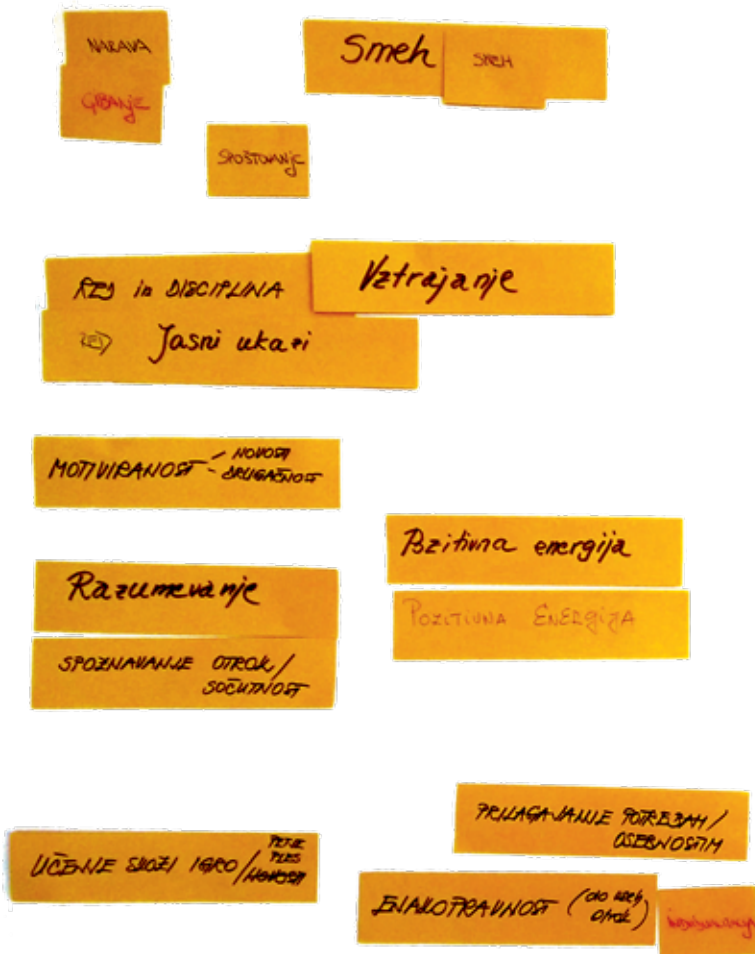 NARAVA
GIBANJE
Smeh
SMEH
SPOŠTOVANJE
RED in DISCIPLINA
Vztrajanje
RED
Jasni ukazi
MOTIVIRANOST - NOVOSTI
- DRUGAČNOST
Pozitivna energija
Razumevanje
POZITIVNA ENERGIJA
SPOZNAVANJE OTROK /
SOČUTNOST
PRILAGAJANJE POTREBAM /
OSEBNOSTIM
UČENJE SKOZI IGRO / PETJE
PLES
NOVOSTI
ENAKOPRAVNOST (do vseh
otrok)